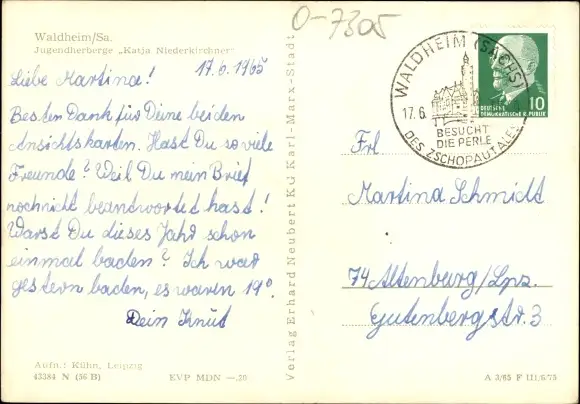 Waldheim/Sa.
Jugendherberge „Katja Niederkirchner"
17.6.1965
Liebe Martina!
Besten Dank für Deine beiden
Ansichtskarten. Hast Du so viele
Freunde? Weil Du mein Brief
noch nicht beantwortet hast!
Warst Du dieses Jahr schon
einmal baden? Ich war
gestern baden, es waren 19°.
Dein Knut
Aufn.: Kühn, Leipzig
43384 N (56 B) EVP MDN —.20
Verlag Erhard Neubert KG Karl-Marx-Stadt
0-7305
WALDHEIM (SACHS)
17.6.
BESUCHT
DIE PERLE
DES ZSCHOPAUTALES
10
DEUTSCHE
DEMOKRATISCHE REPUBLIK
Frl
Martina Schmidt
74 Altenburg/Lpz.
Gutenbergstr. 3
A 3/65 F III/6/75